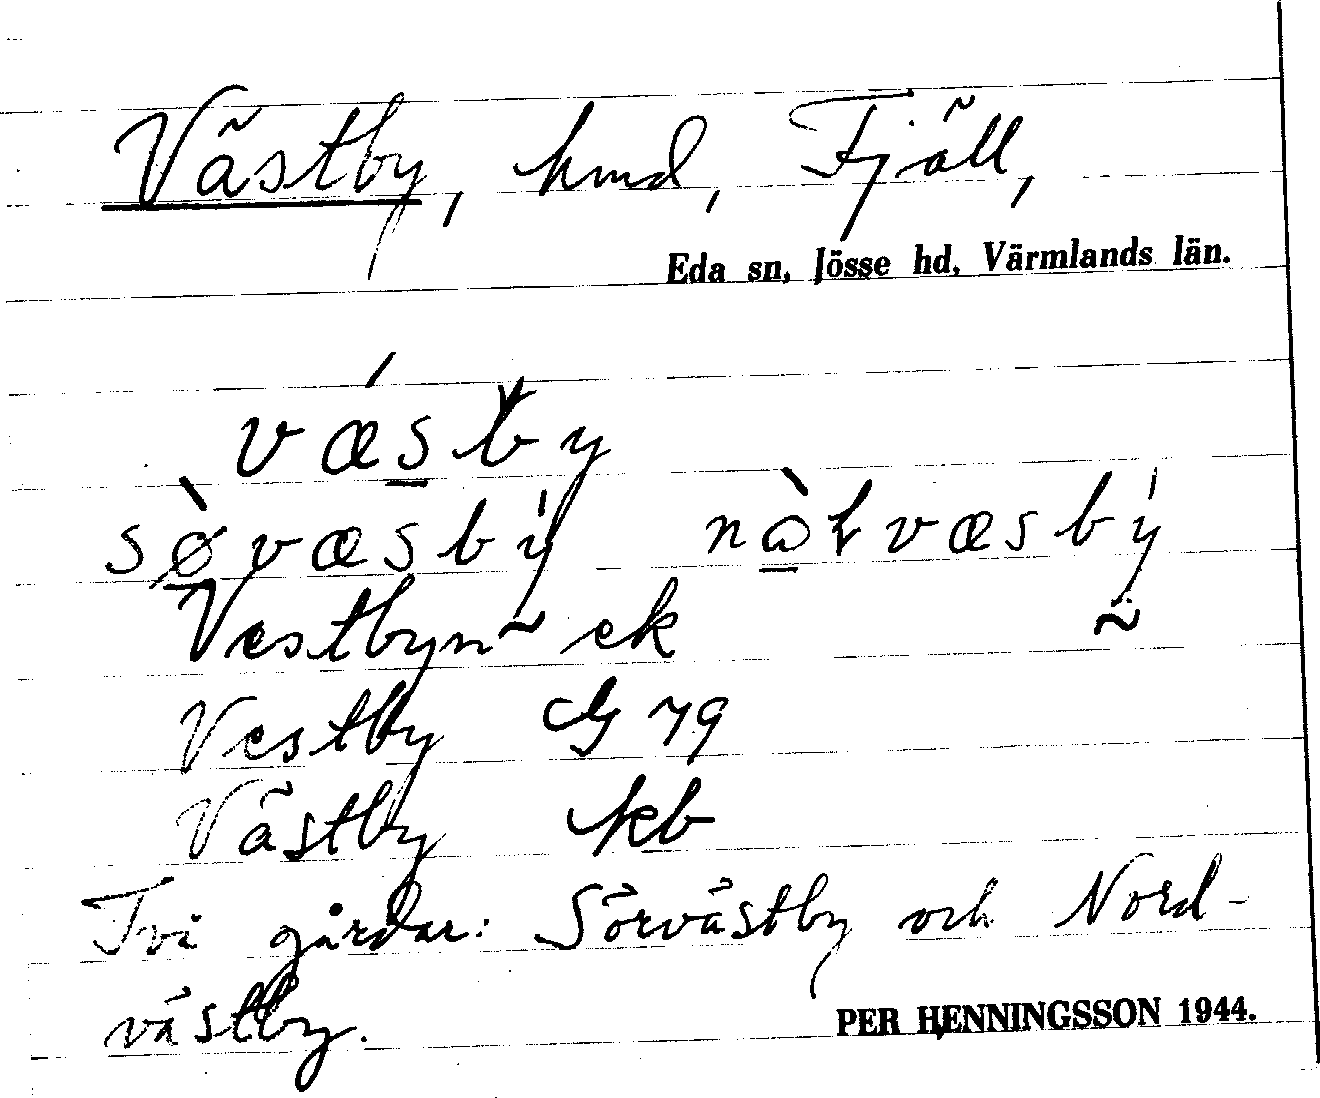 Västby, hmd, Fjäll,
Eda sn, Jösse hd, Värmlands län.
vǽsby
sø̀væsby̍ nàɽvæsby̍
Vestbyn ~ ek
Vestby G 79
Västby kb
Två gårdar: Sörvästby och Nord-
västby.
PER HENNINGSSON 1944.